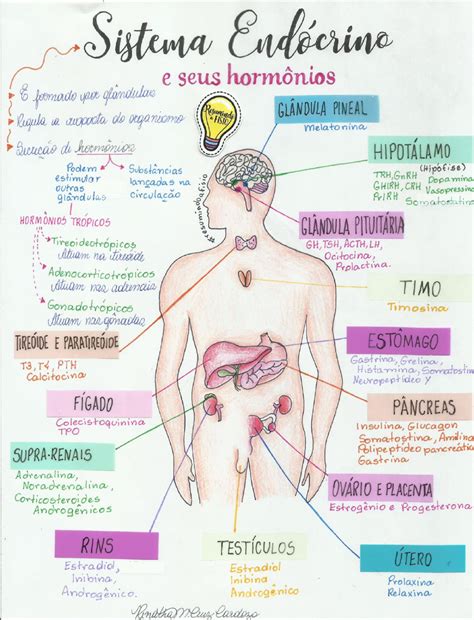 Sistema Endócrino
e seus hormônios
É formado por glândulas
Regula a resposta do organismo
Secreção de hormônios
Podem
estimular
outras
glândulas
Substâncias
lançadas na
circulação
HORMÔNIOS TRÓPICOS
Tireoideotrópicos
Atuam na tireóide
Adenocorticotrópicos
Atuam nas adrenais
Gonadotrópicos
Atuam nas gônadas
Resumindo
a FISIO
@resumindoafisio
GLÂNDULA PINEAL
Melatonina
HIPOTÁLAMO
(Hipófise)
TRH, GnRH
Dopamina
GHRH, CRH
Vasopressina
PrlRH
Somatostatina
GLÂNDULA PITUITÁRIA
GH, TSH, ACTH, LH,
Ocitocina,
Prolactina.
TIMO
Timosina
TIREÓIDE E PARATIREÓIDE
T3, T4, PTH
Calcitocina
ESTÔMAGO
Gastrina, Grelina,
Histamina, Somatostina
Neuropeptídeo Y
FÍGADO
Colecistoquinina
TPO
PÂNCREAS
Insulina, Glucagon
Somatostina, Amilina
Polipeptídeo pancreático
Gastrina
SUPRA-RENAIS
Adrenalina,
Noradrenalina,
Corticosteroides
Androgênicos
OVÁRIO E PLACENTA
Estrogênio e Progesterona
RINS
Estradiol,
Inibina,
Androgênico.
TESTÍCULOS
Estradiol
Inibina
Androgênico
ÚTERO
Prolaxina
Relaxina